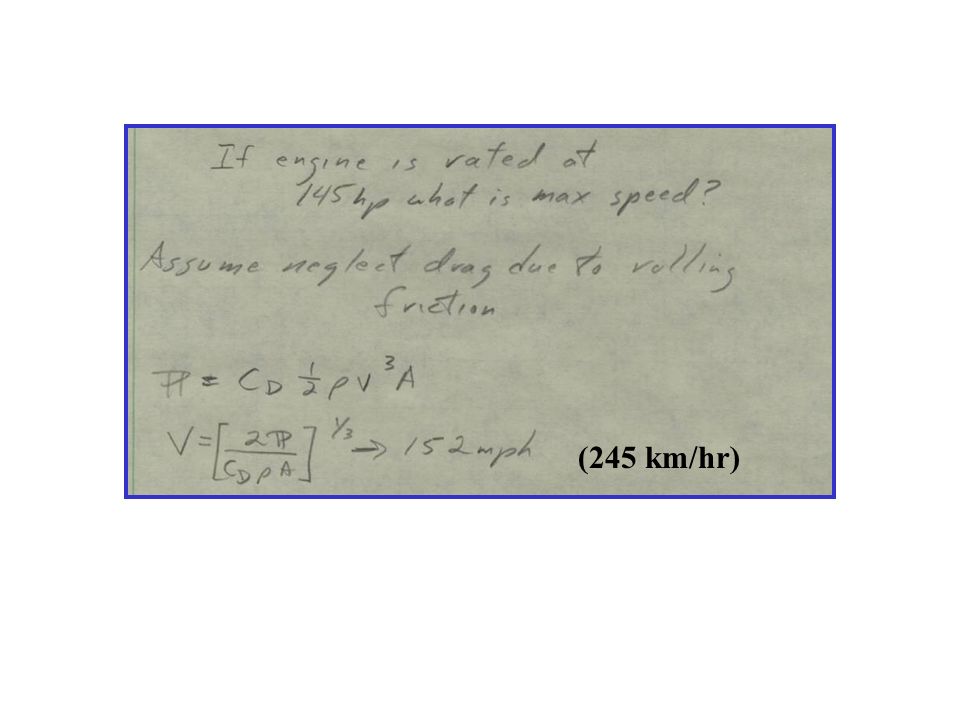 If engine is rated at
145hp what is max speed?
Assume neglect drag due to rolling
friction
ℙ = C_D ½ ρ V³ A
V = [2ℙ / C_D ρ A]^{1/3} → 152 mph
(245 km/hr)